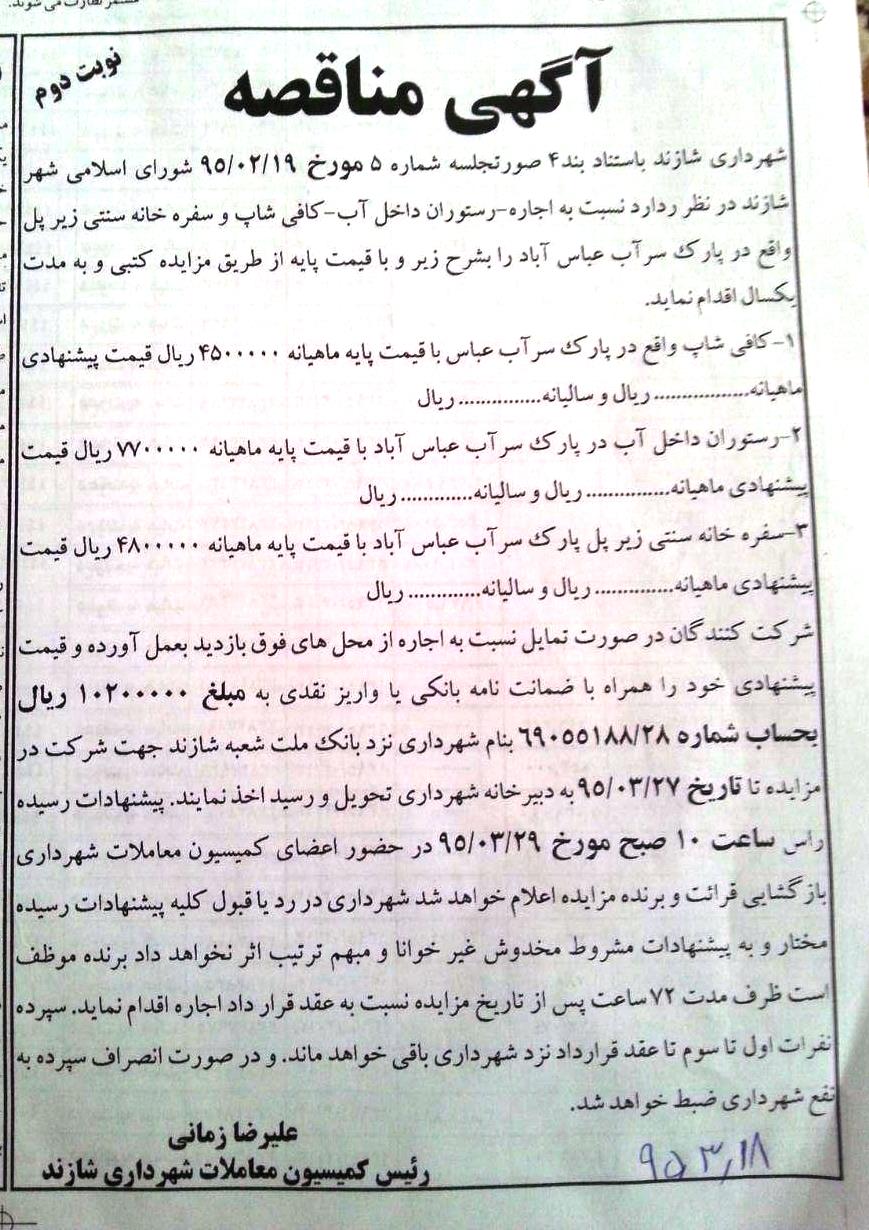 مستمر نظارت می شوند.
نوبت دوم
آگهی مناقصه
شهرداری شازند باستناد بند۴ صورتجلسه شماره ۵ مورخ ۹۵/۰۲/۱۹ شورای اسلامی شهر
شازند در نظر ردارد نسبت به اجاره-رستوران داخل آب-کافی شاپ و سفره خانه سنتی زیر پل
واقع در پارک سرآب عباس آباد را بشرح زیر و با قیمت پایه از طریق مزایده کتبی و به مدت
یکسال اقدام نماید.
۱-کافی شاپ واقع در پارک سرآب عباس با قیمت پایه ماهیانه ۴۵۰۰۰۰۰ ریال قیمت پیشنهادی
ماهیانه................. ریال و سالیانه............... ریال
۲-رستوران داخل آب در پارک سرآب عباس آباد با قیمت پایه ماهیانه ۷۷۰۰۰۰۰ ریال قیمت
پیشنهادی ماهیانه............... ریال و سالیانه............. ریال
۳-سفره خانه سنتی زیر پل پارک سرآب عباس آباد با قیمت پایه ماهیانه ۴۸۰۰۰۰۰ ریال قیمت
پیشنهادی ماهیانه.............. ریال و سالیانه............. ریال
شرکت کنندگان در صورت تمایل نسبت به اجاره از محل های فوق بازدید بعمل آورده و قیمت
پیشنهادی خود را همراه با ضمانت نامه بانکی یا واریز نقدی به مبلغ ۱۰۲۰۰۰۰۰ ریال
بحساب شماره ۶۹۰۵۵۱۸۸/۲۸ بنام شهرداری نزد بانک ملت شعبه شازند جهت شرکت در
مزایده تا تاریخ ۹۵/۰۳/۲۷ به دبیرخانه شهرداری تحویل و رسید اخذ نمایند. پیشنهادات رسیده
راس ساعت ۱۰ صبح مورخ ۹۵/۰۳/۲۹ در حضور اعضای کمیسیون معاملات شهرداری
بازگشایی قرائت و برنده مزایده اعلام خواهد شد شهرداری در رد یا قبول کلیه پیشنهادات رسیده
مختار و به پیشنهادات مشروط مخدوش غیر خوانا و مبهم ترتیب اثر نخواهد داد برنده موظف
است ظرف مدت ۷۲ ساعت پس از تاریخ مزایده نسبت به عقد قرار داد اجاره اقدام نماید. سپرده
نفرات اول تا سوم تا عقد قرارداد نزد شهرداری باقی خواهد ماند. و در صورت انصراف سپرده به
نفع شهرداری ضبط خواهد شد.
علیرضا زمانی
رئیس کمیسیون معاملات شهرداری شازند
۹۵,۳,۱۸